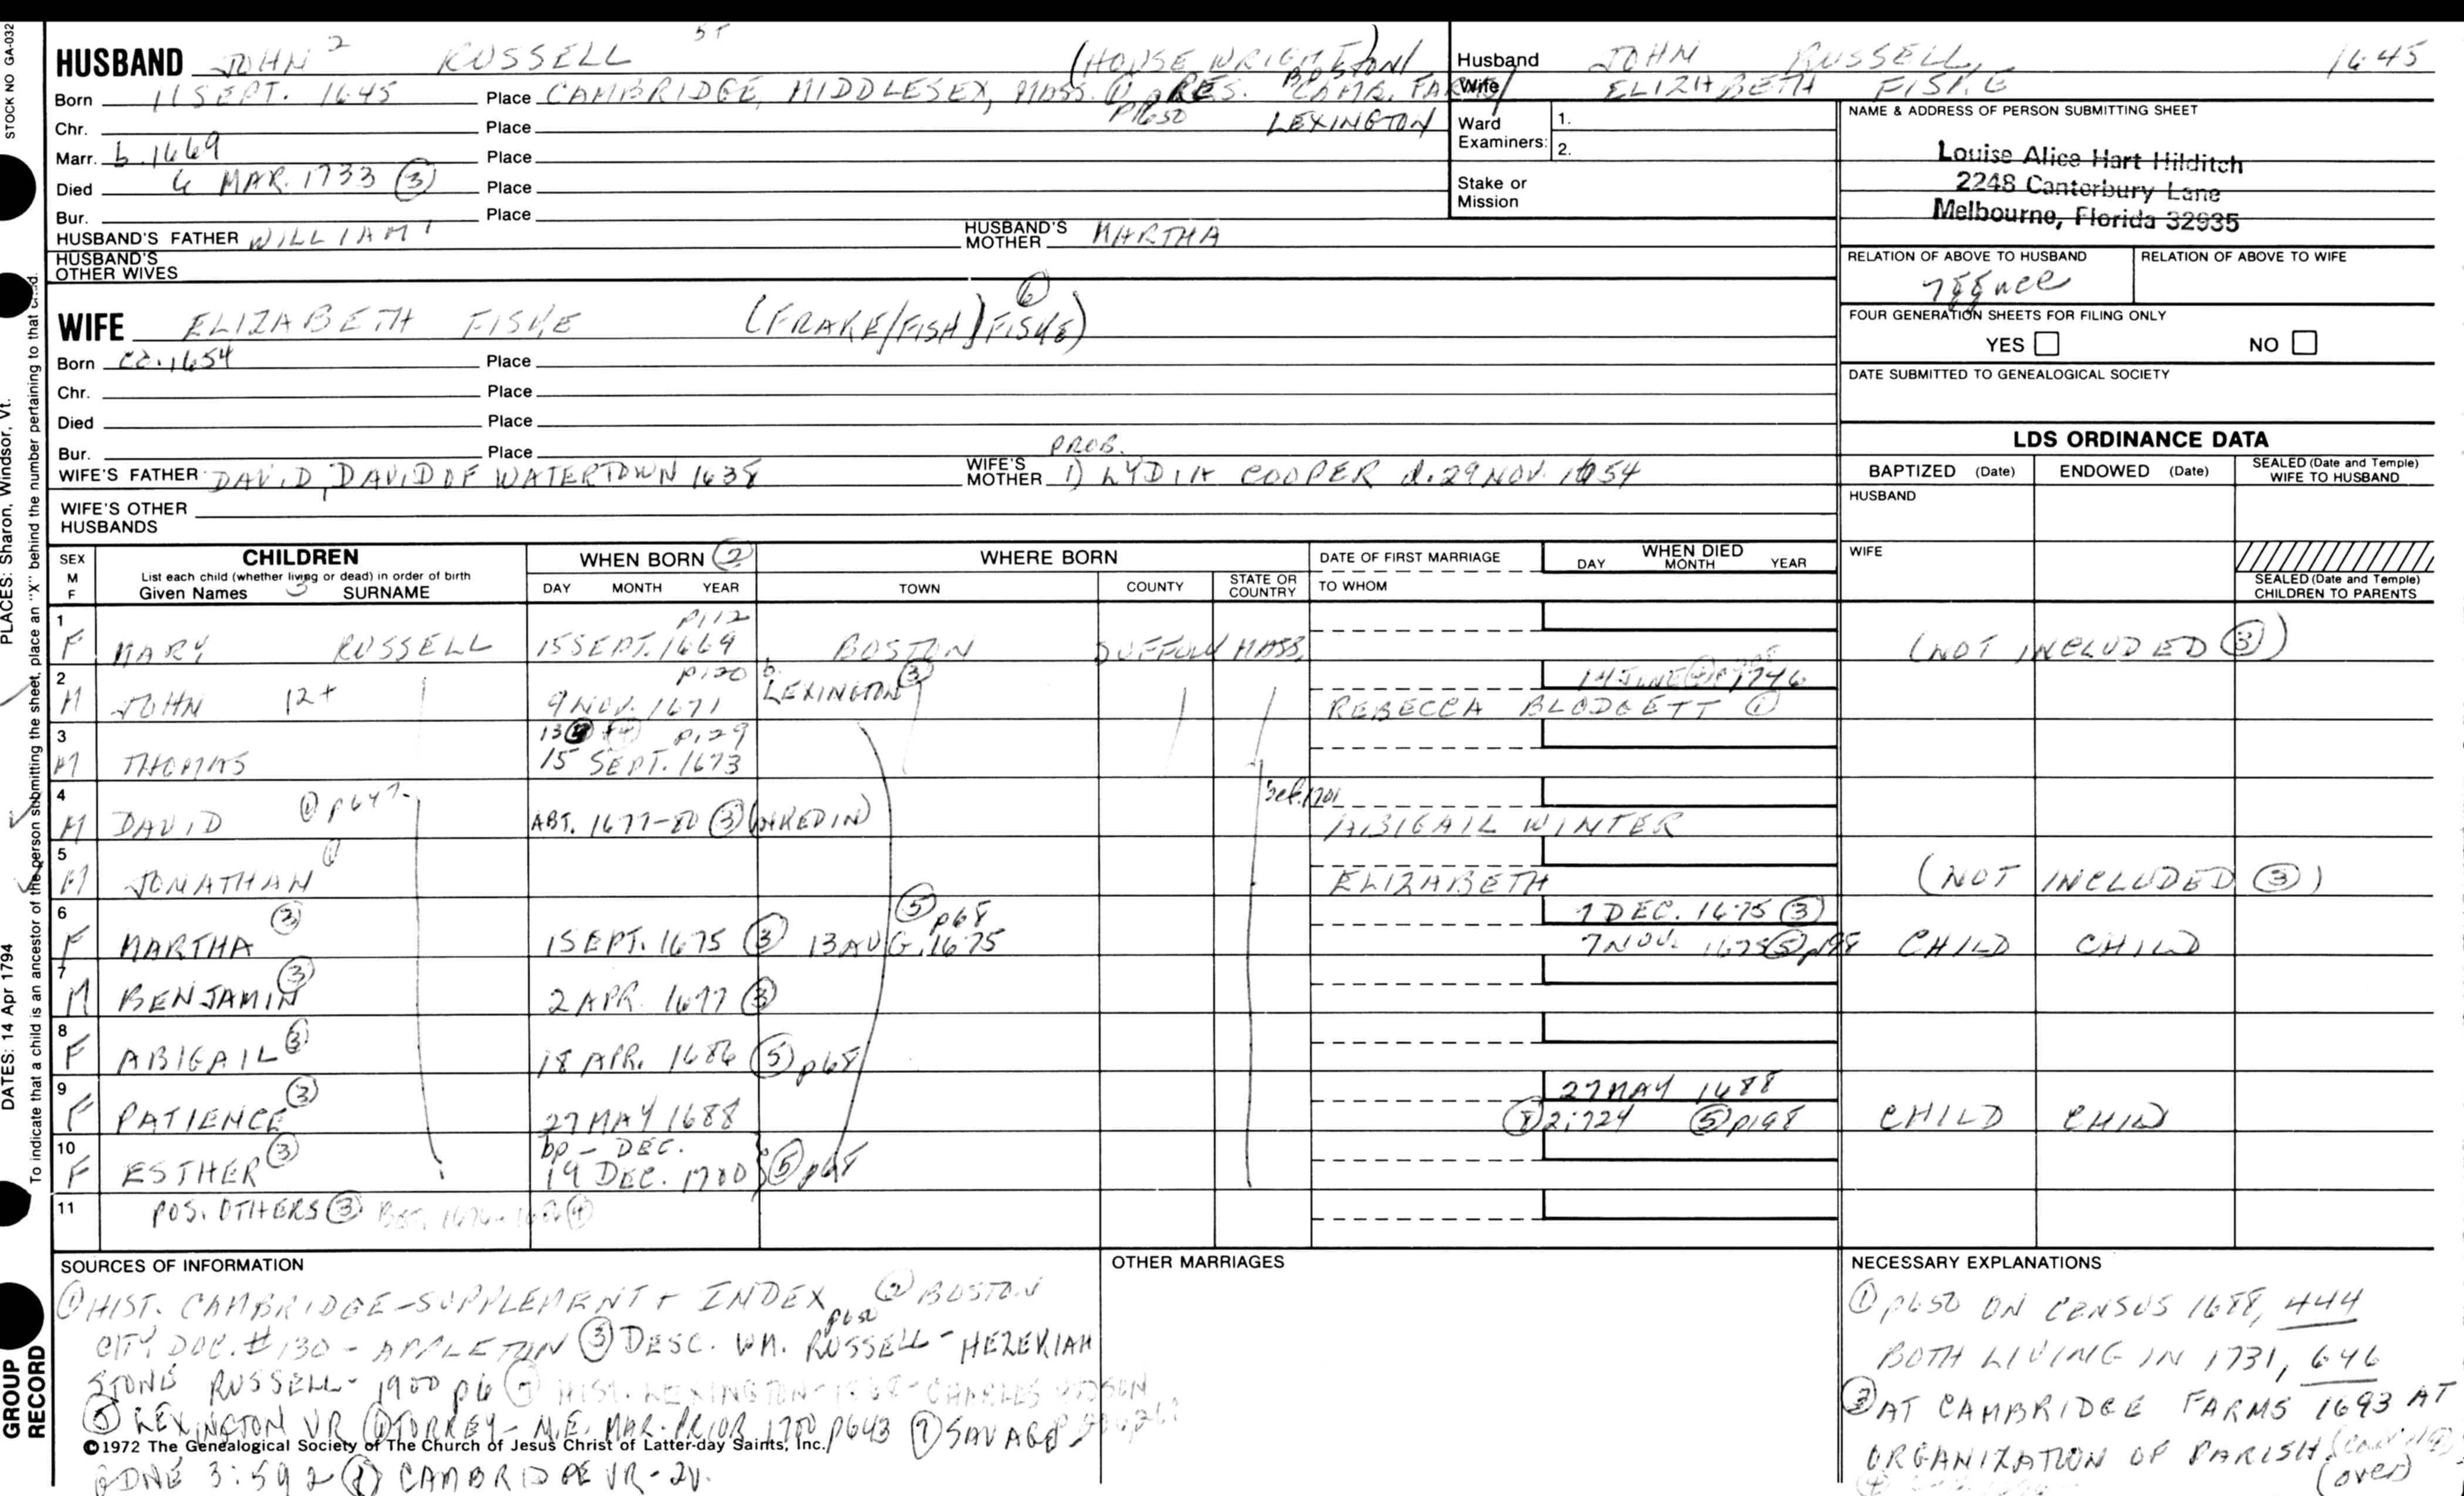 STOCK NO GA-032
PLACES: Sharon, Windsor, Vt.
DATES: 14 Apr 1794
To indicate that a child is an ancestor of the person submitting the sheet, place an "X" behind the number pertaining to that child.
GROUP RECORD
HUSBAND JOHN 2 RUSSELL (HOUSE WRIGHT)
Born 11 SEPT. 1645 Place CAMBRIDGE, MIDDLESEX, MASS. ① RES. BOSTON/ CAMB. FARMS/
p1650 LEXINGTON
Chr. Place
Marr. b. 1669 Place
Died 6 MAR. 1733 ③ Place
Bur. Place
HUSBAND'S FATHER WILLIAM 1 HUSBAND'S MOTHER MARTHA
HUSBAND'S OTHER WIVES
WIFE ELIZABETH FISKE (FRAKE/FISH) FISKE) ⑥
Born ca. 1654 Place
Chr. Place
Died Place
Bur. Place PROB.
WIFE'S FATHER DAVID, DAVID OF WATERTOWN 1638 WIFE'S MOTHER 1) LYDIA COOPER d. 29 NOV. 1654
WIFE'S OTHER HUSBANDS
Husband JOHN RUSSELL, 1645
Wife ELIZABETH FISKE
Ward 1.
Examiners: 2.
Stake or Mission
NAME & ADDRESS OF PERSON SUBMITTING SHEET
Louise Alice Hart Hilditch
2248 Canterbury Lane
Melbourne, Florida 32935
RELATION OF ABOVE TO HUSBAND RELATION OF ABOVE TO WIFE
FOUR GENERATION SHEETS FOR FILING ONLY
YES NO
DATE SUBMITTED TO GENEALOGICAL SOCIETY
LDS ORDINANCE DATA
BAPTIZED (Date) ENDOWED (Date) SEALED (Date and Temple) WIFE TO HUSBAND
HUSBAND
WIFE
SEALED (Date and Temple) CHILDREN TO PARENTS
SEX M F CHILDREN WHEN BORN ② WHERE BORN DATE OF FIRST MARRIAGE WHEN DIED
List each child (whether living or dead) in order of birth
Given Names 3 SURNAME DAY MONTH YEAR TOWN COUNTY STATE OR COUNTRY TO WHOM DAY MONTH YEAR
1 p112
F MARY RUSSELL 15 SEPT. 1669 BOSTON SUFFOLK MASS. (NOT INCLUDED ③)
2 p120 b. LEXINGTON ③ 14 JUNE 1746
M JOHN 12+ 9 NOV. 1671 REBECCA BLODGETT ①
3 13 p129
M THOMAS 15 SEPT. 1673
4 ① p647 bef. 1701
M DAVID ABT. 1677-80 ③ ABIGAIL WINTER
5
M JONATHAN ELIZABETH (NOT INCLUDED ③)
6 ③ ⑤ p68 7 DEC. 1675 ③
F MARTHA 1 SEPT. 1675 ③ 13 AUG. 1675 7 NOV. 1675 ⑤ p198 CHILD CHILD
7
M BENJAMIN ③ 2 APR. 1677 ③
8
F ABIGAIL ③ 18 APR. 1686 ⑤ p68
9 27 MAY 1688
F PATIENCE ③ 27 MAY 1688 ⑧ 2:724 ⑤ p198 CHILD CHILD
10 bp - DEC.
F ESTHER ③ 19 DEC. 1700 ⑤ p68
11 POS. OTHERS ③
SOURCES OF INFORMATION
① HIST. CAMBRIDGE - SUPPLEMENT + INDEX p650 ② BOSTON
CITY DOC. #130 - APPLETON ③ DESC. WM. RUSSELL - HEZEKIAH
STONE RUSSELL - 1900 p6 ④ HIST. LEXINGTON - 1868 - CHARLES HUDSON
⑤ LEXINGTON VR ⑥ TORREY - N.E. MAR. PRIOR 1700 p643 ⑦ SAVAGE
©1972 The Genealogical Society of The Church of Jesus Christ of Latter-day Saints, Inc.
GDNE 3:592 ⑧ CAMBRIDGE VR - 2V.
OTHER MARRIAGES
NECESSARY EXPLANATIONS
① p650 ON CENSUS 1688, 444
BOTH LIVING IN 1731, 646
③ AT CAMBRIDGE FARMS 1693 AT
ORGANIZATION OF PARISH
(over)